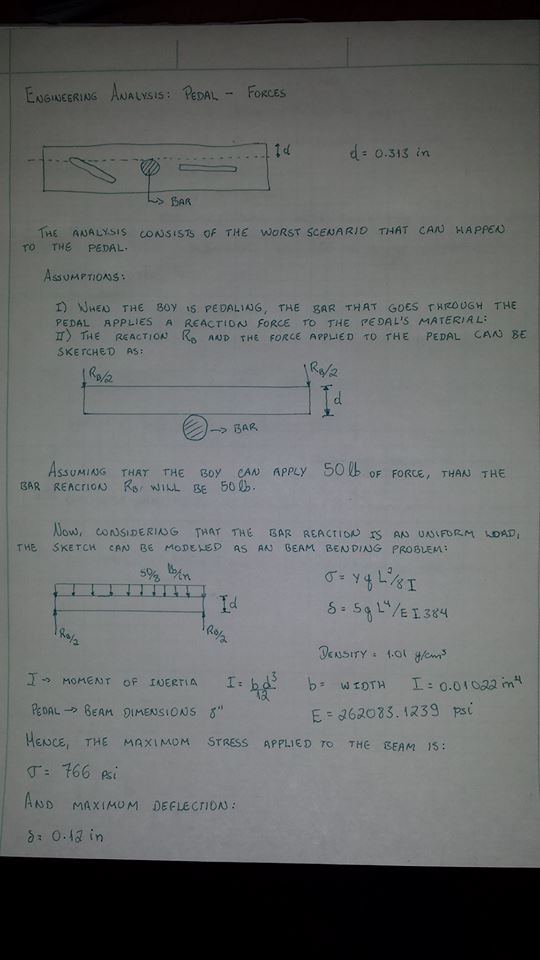 ENGINEERING ANALYSIS: PEDAL - FORCES
d
d = 0.313 in
→ BAR
THE ANALYSIS CONSISTS OF THE WORST SCENARIO THAT CAN HAPPEN
TO THE PEDAL.
ASSUMPTIONS:
I) WHEN THE BOY IS PEDALING, THE BAR THAT GOES THROUGH THE
PEDAL APPLIES A REACTION FORCE TO THE PEDAL'S MATERIAL:
II) THE REACTION RB AND THE FORCE APPLIED TO THE PEDAL CAN BE
SKETCHED AS:
RB/2
RB/2
d
→ BAR
ASSUMING THAT THE BOY CAN APPLY 50 lb OF FORCE, THAN THE
BAR REACTION RB WILL BE 50 lb.
NOW, CONSIDERING THAT THE BAR REACTION IS AN UNIFORM LOAD,
THE SKETCH CAN BE MODELED AS AN BEAM BENDING PROBLEM:
50/8 lb/in
d
RB/2
RB/2
σ = y q L²/8 I
δ = 5 q L⁴/E I 384
DENSITY = 1.01 g/cm³
I → MOMENT OF INERTIA I = bd³/12 b = WIDTH I = 0.01022 in⁴
PEDAL → BEAM DIMENSIONS 8" E = 262083.1239 psi
HENCE, THE MAXIMUM STRESS APPLIED TO THE BEAM IS:
σ = 766 psi
AND MAXIMUM DEFLECTION:
δ = 0.12 in